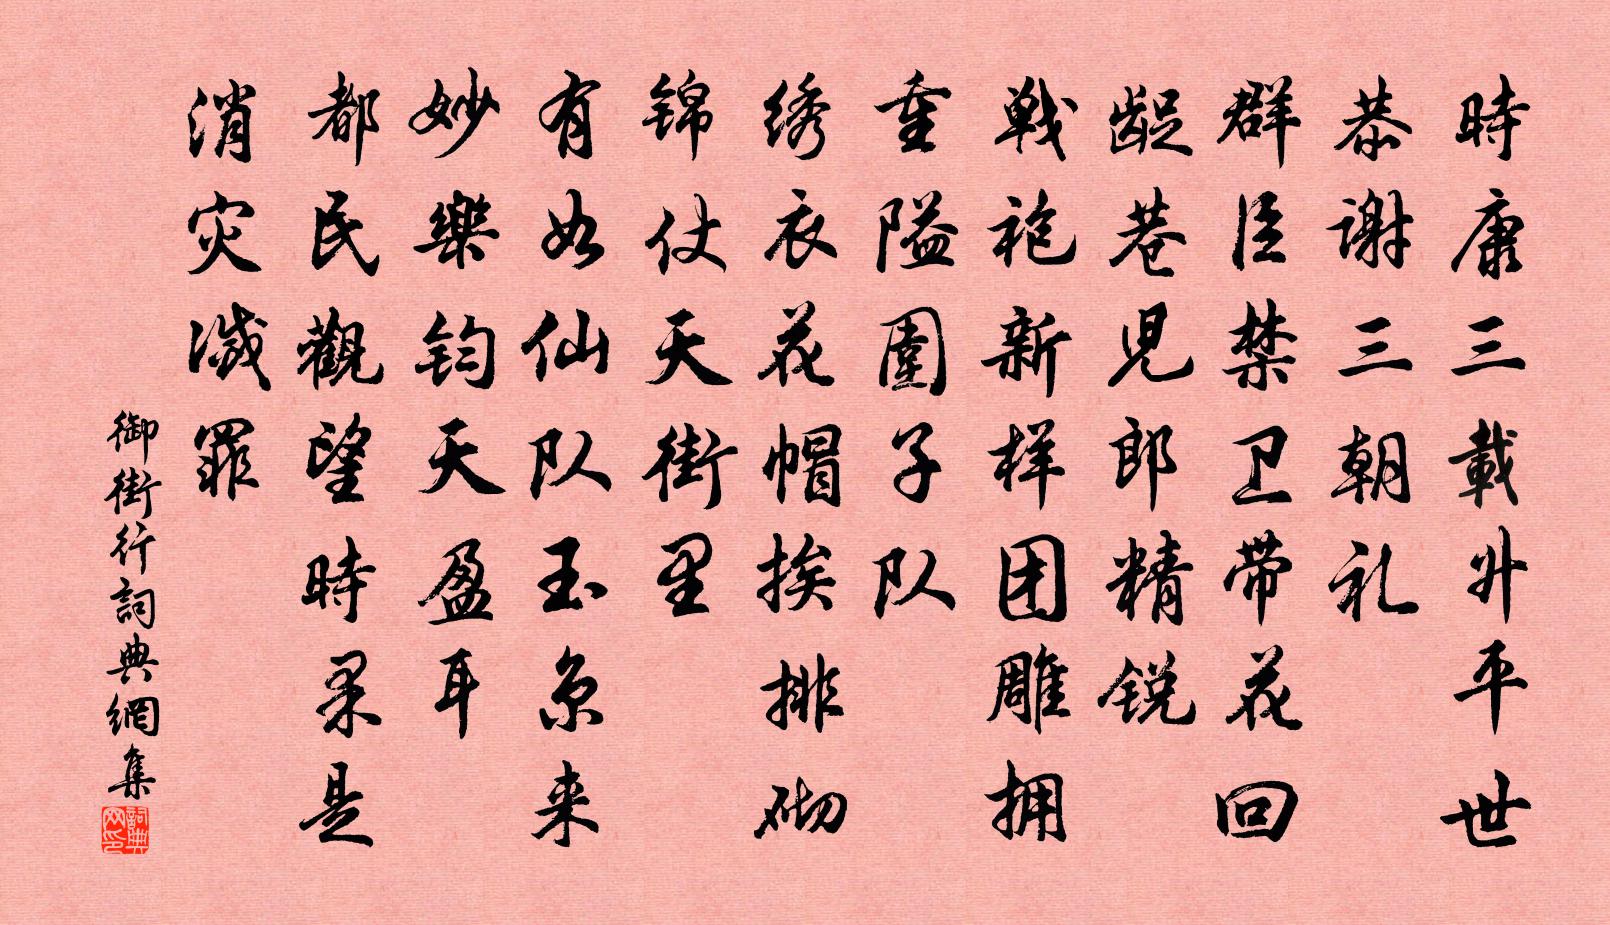 時康三載升平世
恭谢三朝礼
群臣禁卫带花回
龊巷児郎精锐
戦袍新样团雕拥
重隘圍子队
绣衣花帽挨排砌
锦仗天街里
有如仙队玉京来
妙樂钧天盈耳
都民觀望時果是
消灾滅罪
御街行詞典網集
詞典网印